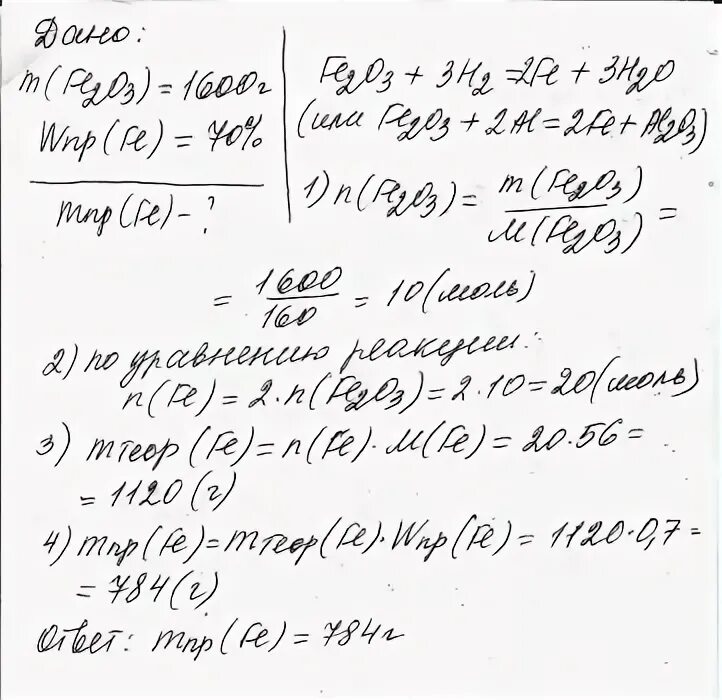 Дано:
m(Fe2O3) = 1600г
Wпр(Fe) = 70%
mпр(Fe) - ?
Fe2O3 + 3H2 = 2Fe + 3H2O
(или Fe2O3 + 2Al = 2Fe + Al2O3)
1) n(Fe2O3) = m(Fe2O3) / M(Fe2O3) =
= 1600 / 160 = 10 (моль)
2) по уравнению реакции:
n(Fe) = 2·n(Fe2O3) = 2·10 = 20 (моль)
3) mтеор(Fe) = n(Fe)·M(Fe) = 20·56 =
= 1120 (г)
4) mпр(Fe) = mтеор(Fe)·Wпр(Fe) = 1120·0,7 =
= 784 (г)
Ответ: mпр(Fe) = 784г